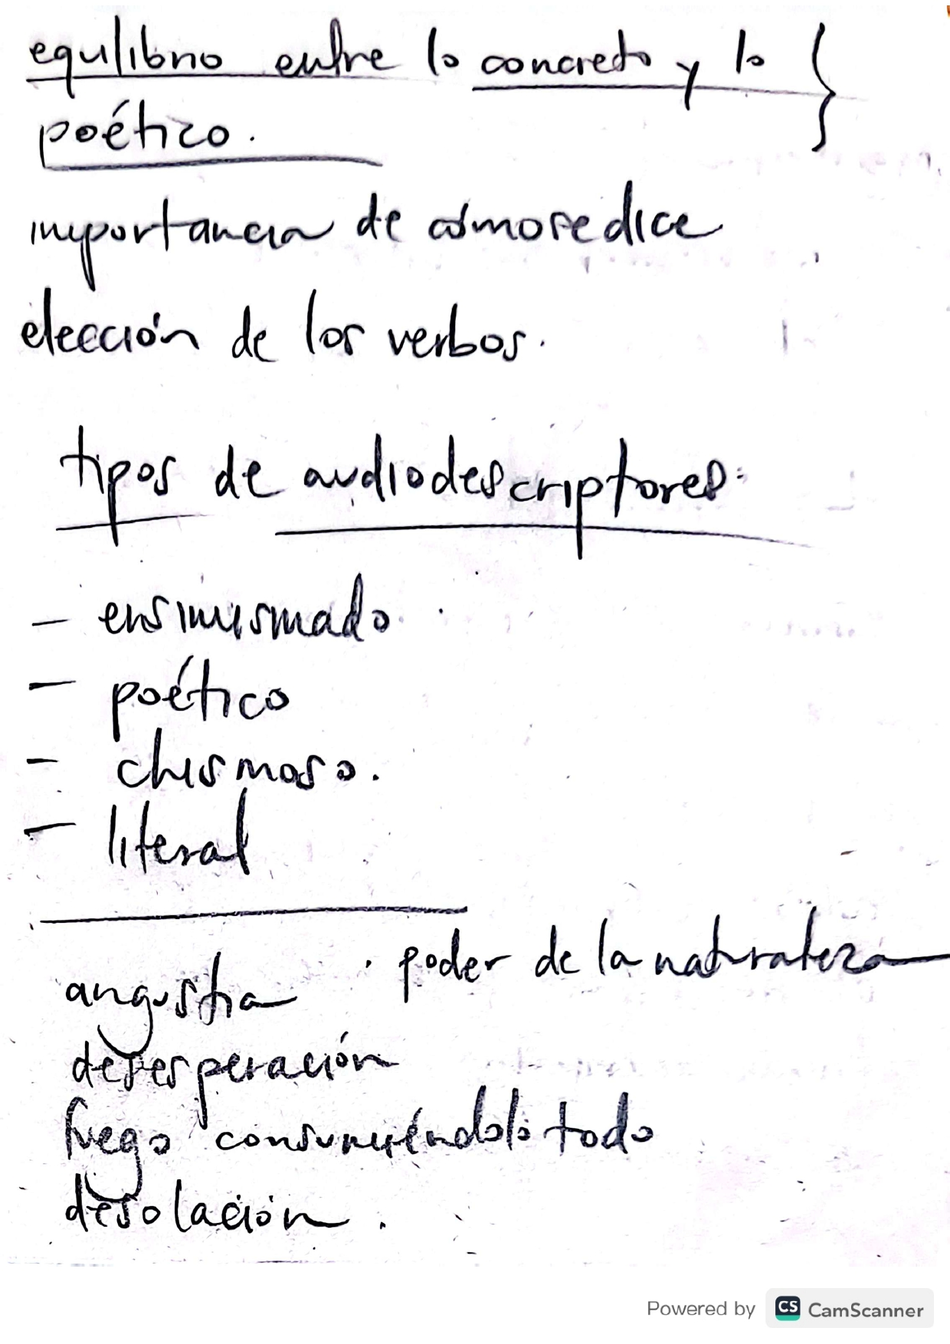 equilibrio entre lo concreto y lo }
poético.
importancia de cómo se dice
elección de los verbos.
tipos de audiodescriptores:
- ensimismado.
- poético
- chismoso.
- literal
· poder de la naturaleza
angustia
desesperación
fuego consumiéndolo todo
desolación.
Powered by CS CamScanner